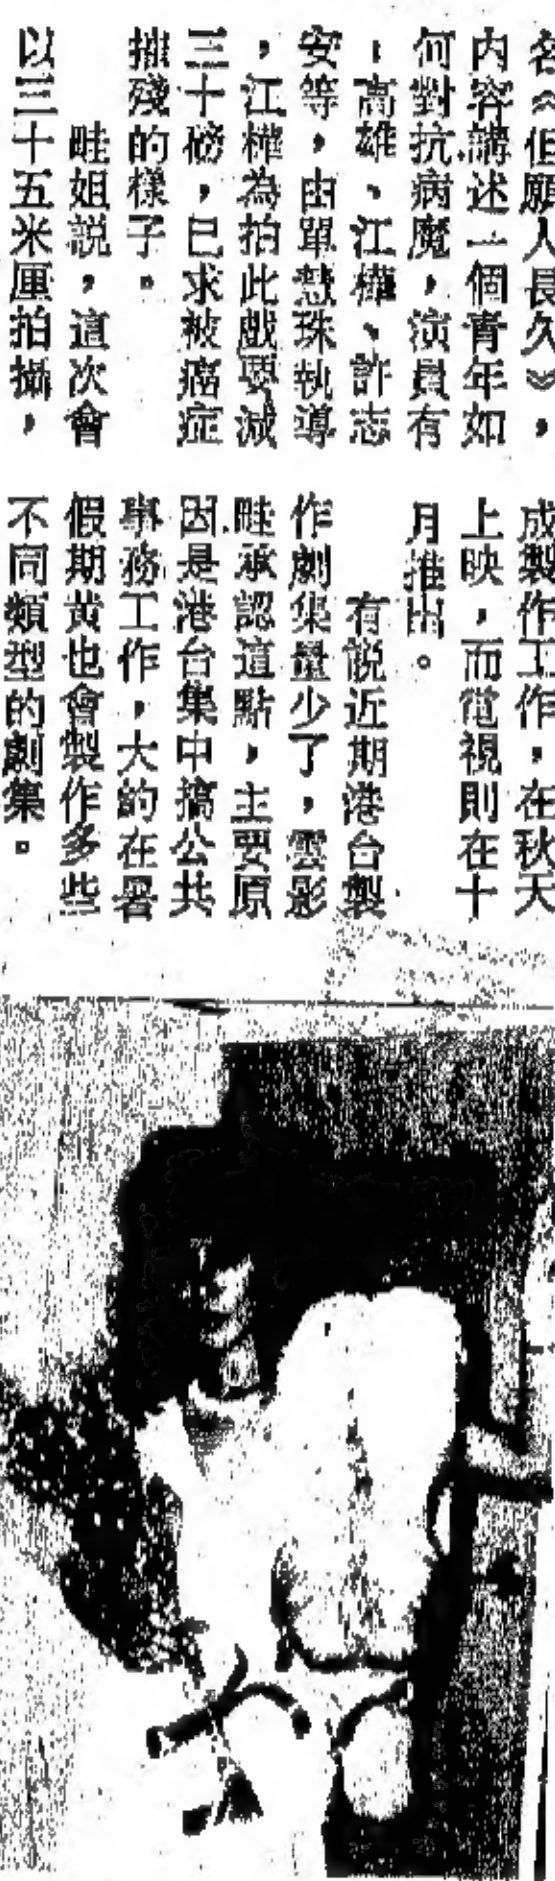 名《但願人長久》，
内容講述一個青年如
何對抗病魔，演員有
：高雄、江樺、許志
安等，由單慧珠執導
，江樺為拍此戲要減
三十磅，已求被癌症
摧殘的樣子。
畦姐説，這次會
以三十五米厘拍攝，
成製作工作，在秋天
上映，而電視則在十
月推出。
有説近期港台製
作劇集量少了，雲影
畦承認這點，主要原
因是港台集中搞公共
事務工作，大約在暑
假期黄也會製作多些
不同類型的劇集。